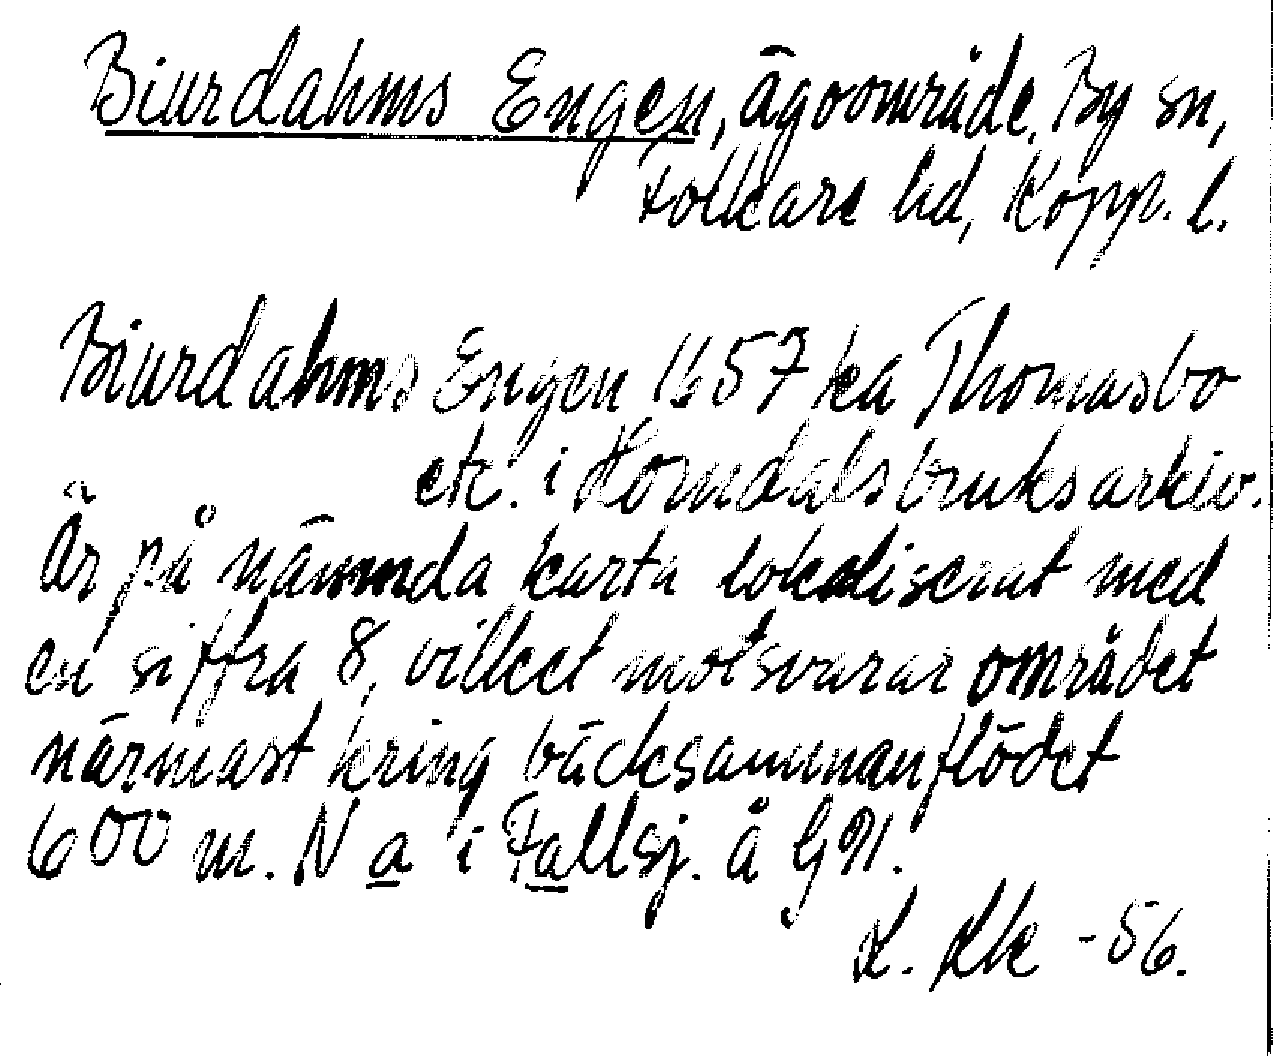 Biurdahms Engen, ägoområde, By sn,
Folkare hd, Kopp. l.
Biurdahms Engen 1657 ka Thomasbo
etc. i Horndalsbruksarkiv.
Är på nämnda karta lokaliserat med
en siffra 8, vilket motsvarar området
närmast kring bäcksammanflödet
600 m. N a i Fallsj. å GK.
K. -56.